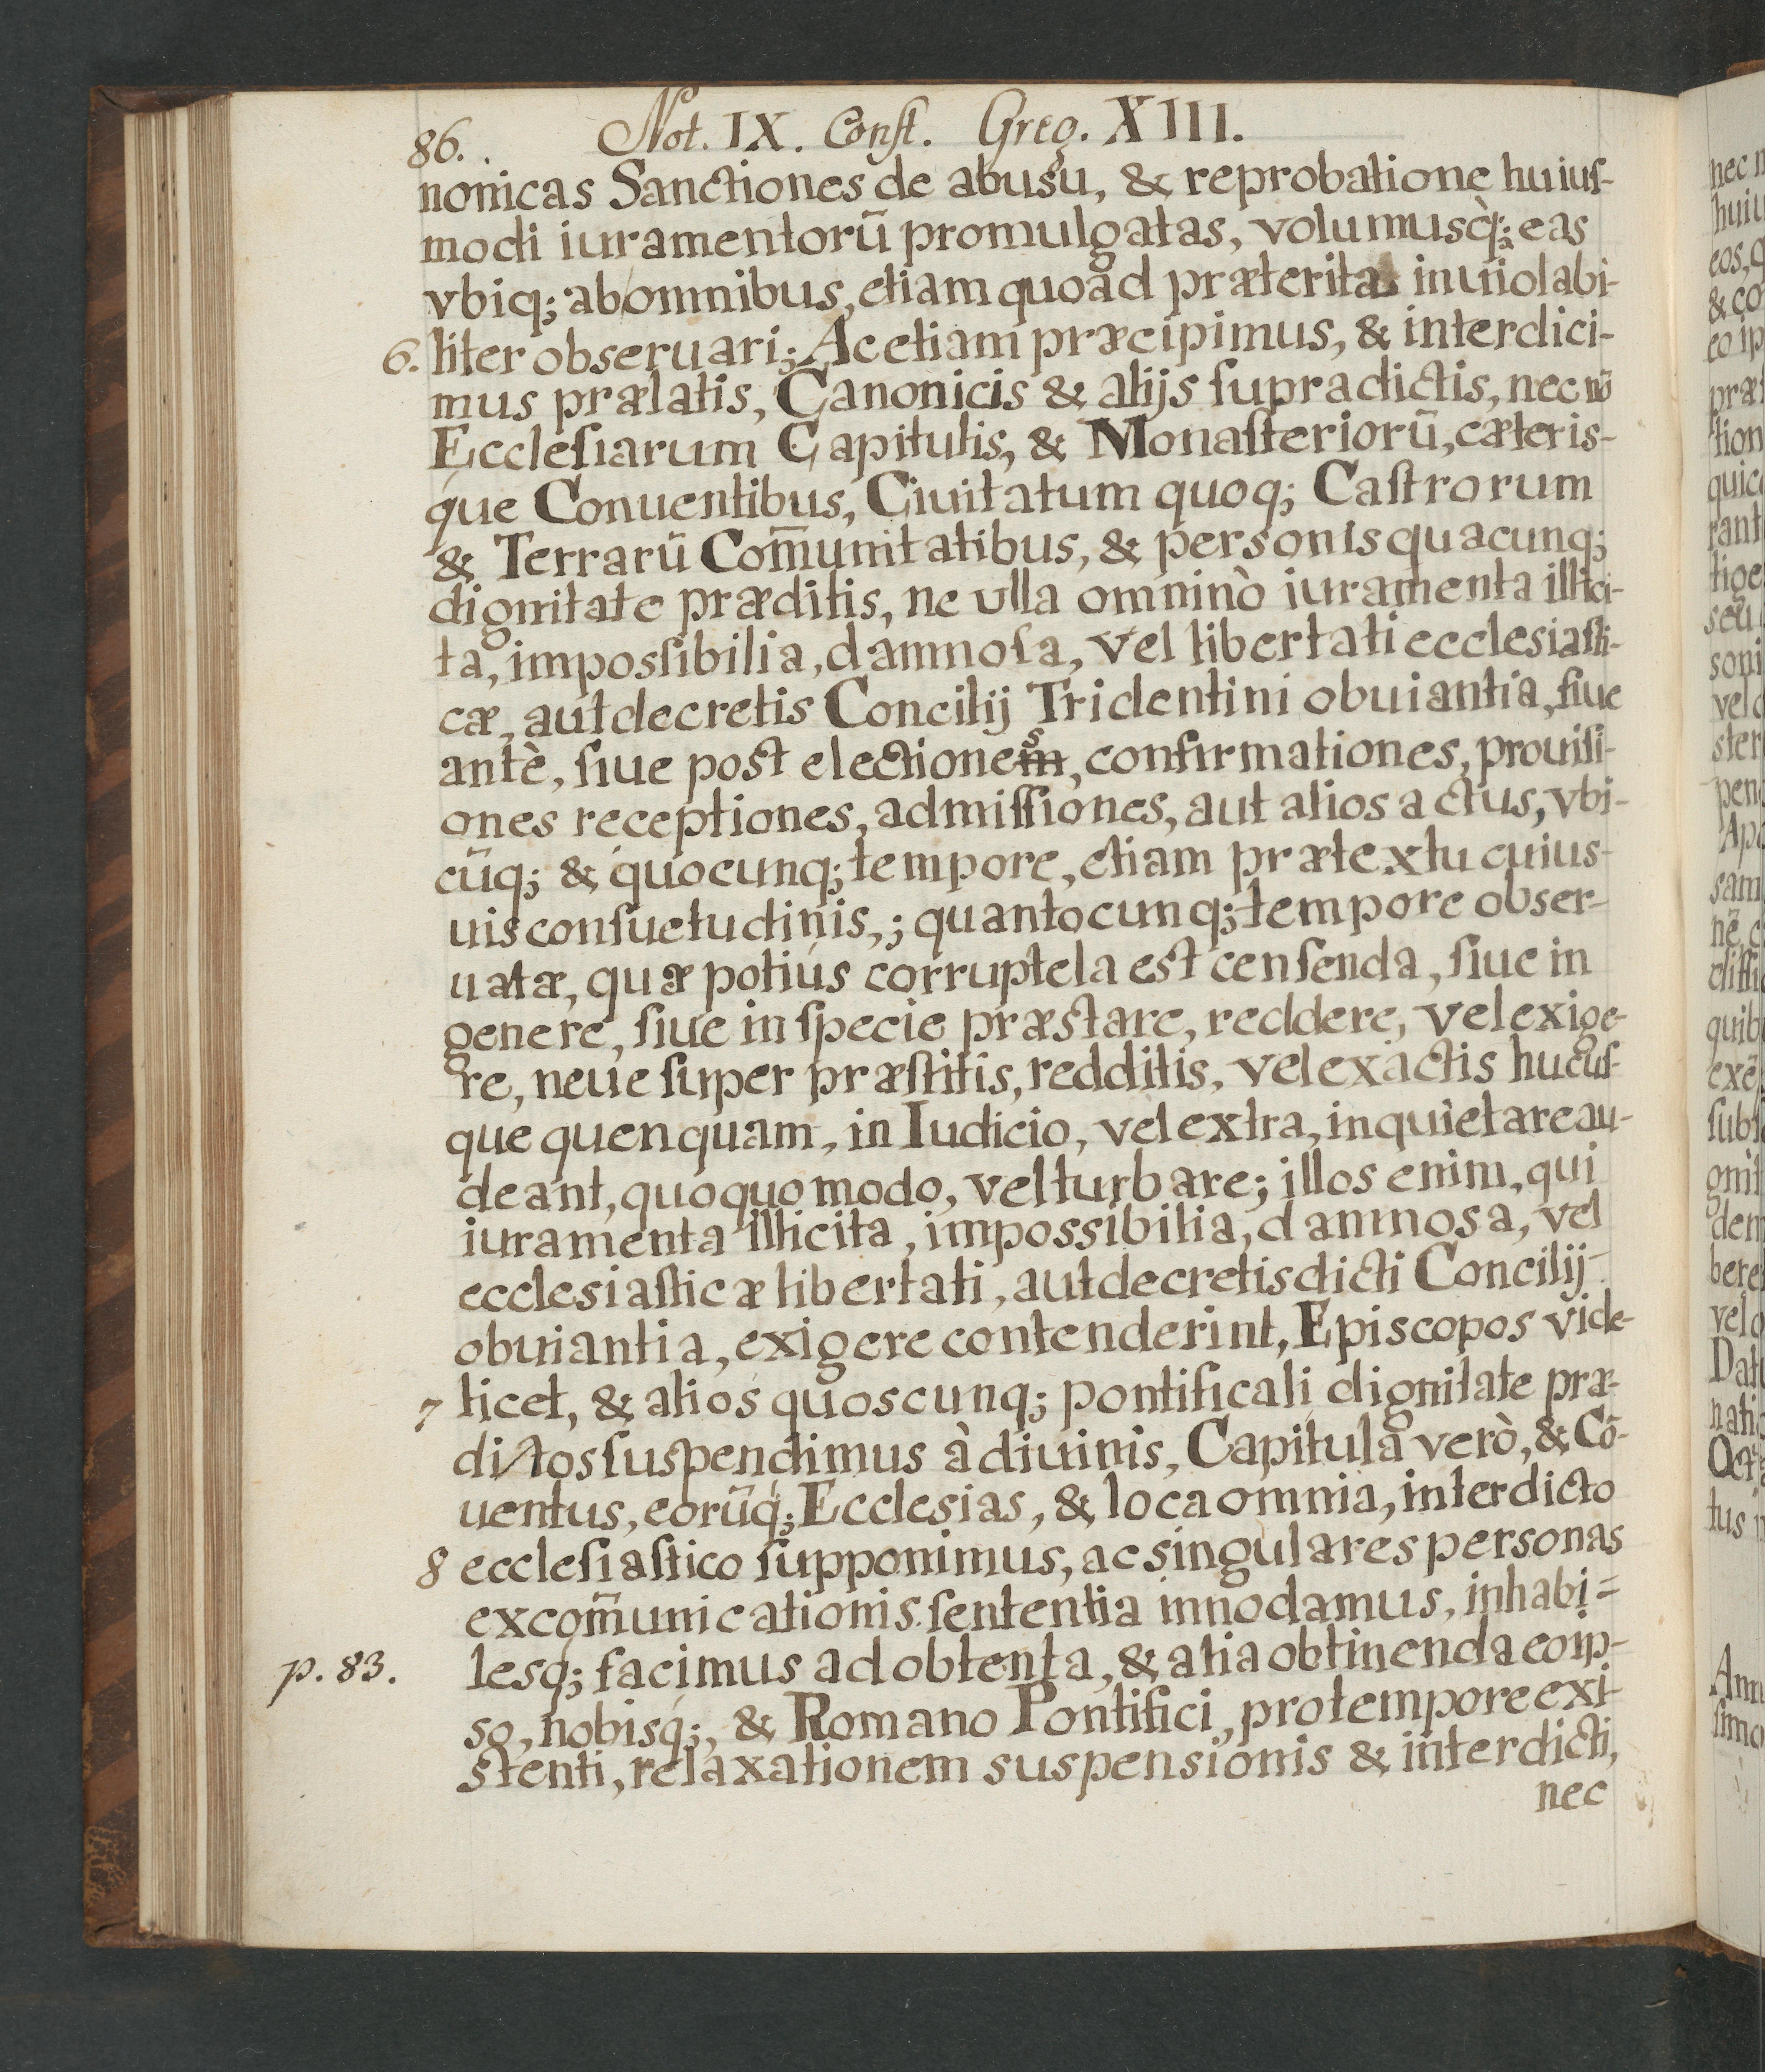 86. Not. IX. Conſt. Greg. XIII.
nonicas Sanctiones de abusu, & reprobatione huiuſ-
modi iuramentorũ promulgatas, volumusq̀; eas
vbiq; ab omnibus, etiam quoad præterita inuiolabi-
6. liter obseruari; Ac etiam præcipimus, & interdici-
mus prælatis, Canonicis & alijs ſupradictis, nec nõ
Eccleſiarum Capitulis, & Monaſteriorũ, cæteris-
que Conuentibus, Ciuitatum quoq; Caſtrorum
& Terrarũ Com̃unitatibus, & personis quacunq;
dignitate præditis, ne ulla omninò iuramenta illici-
ta, imposſibilia, damnoſa, vel libertati ecclesiaſti-
cæ, aut decretis Concilij Tridentini obuiantia, ſiue
antè, ſiue post electiones, confirmationes, prouiſi-
ones receptiones, admiſſiones, aut alios actus, vbi-
cũq; & quocunq; tempore, etiam prætextu cuius-
uis conſuetudinis,; quantocunq; tempore obser-
uatæ, quæ potius corruptela est cenſenda, ſiue in
genere, ſiue in ſpecie præstare, reddere, vel exige-
re, neue ſuper præſtitis, redditis, vel exactis hucuſ-
que quenquam, in Iudicio, vel extra, inquietare au-
deant, quoquo modo, vel turbare; illos enim, qui
iuramenta illicita, impossibilia, damnosa, vel
ecclesiaſticæ libertati, aut decretis dicti Concilij
obuiantia, exigere contenderint, Episcopos vide-
7 licet, & alios quoscunq; pontificali dignitate præ-
dictos ſuspendimus à diuinis, Capitula verò, & Cõ-
uentus, eorũq́; Ecclesias, & loca omnia, interdicto
8 eccleſiaſtico ſupponimus, ac singulares personas
excom̃unicationis ſententia innodamus, inhabi=
p. 83. lesq; facimus ad obtenta, & alia obtinenda eo ip-
so, nobisq;, & Romano Pontifici, pro tempore exi-
stenti, relaxationem suspensionis & interdicti,
nec